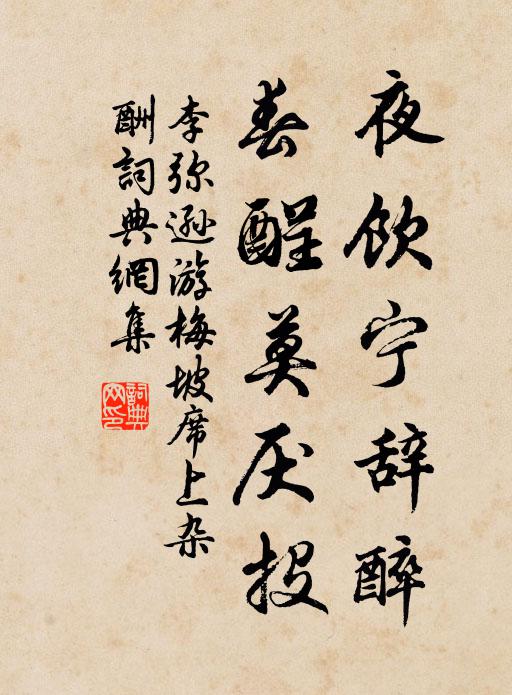 夜饮宁辞醉
春酲莫厌投
李弥逊游梅坡席上杂
酬詞典網集
詞典网印